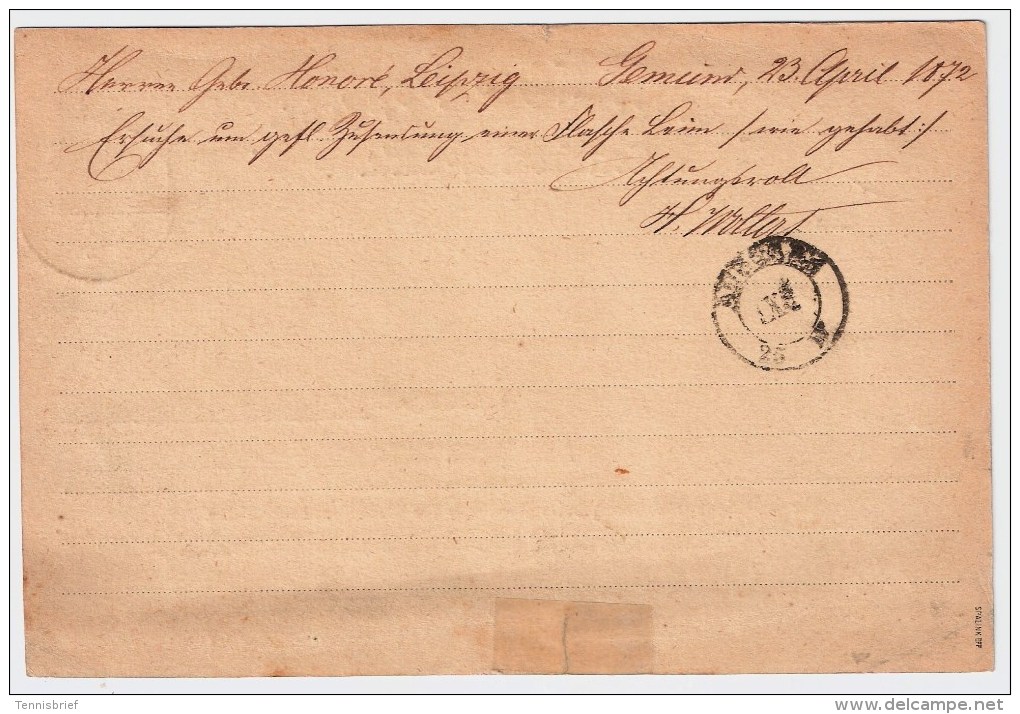 Herren Gebr. Honoré, Leipzig Gemünd, 23. April 1872
Ersuche um gefl. Zusendung einer Flasche Leim /: wie gehabt :/
Achtungsvoll
25
SPALINK BPP
Tennisbrief
www.delcampe.net